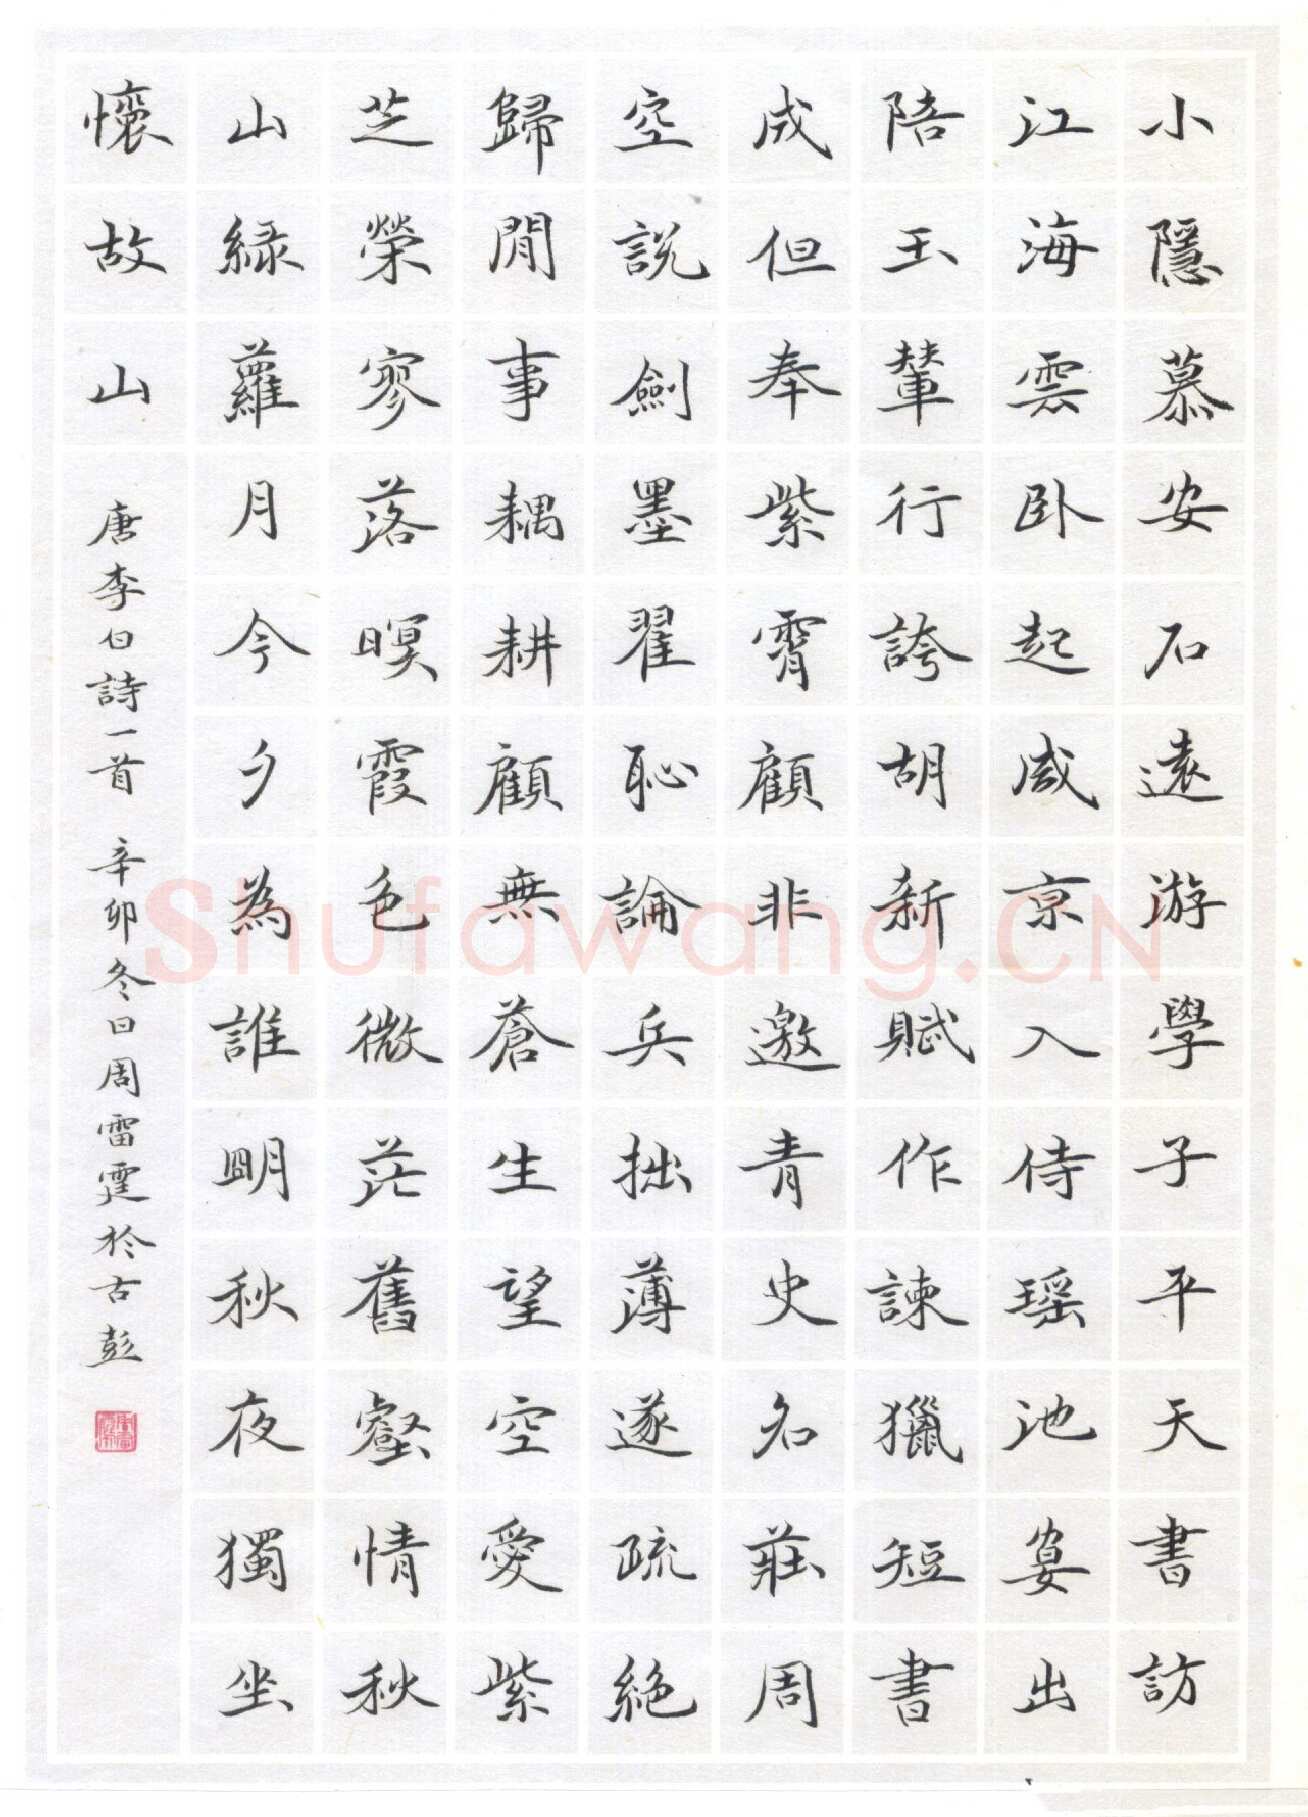 小隱慕安石遠游學子平天書訪
江海雲卧起咸京入侍瑶池宴出
陪玉輦行誇胡新賦作諫獵短書
成但奉紫霄顧非邀青史名莊周
空說劍墨翟恥論兵拙薄遂疏絶
歸閒事耦耕顧無蒼生望空愛紫
芝榮寥落暝霞色微茫舊壑情秋
山緑蘿月今夕為誰明秋夜獨坐
懷故山
唐李白詩一首 辛卯冬日周雷霆於古彭
Shufawang.CN